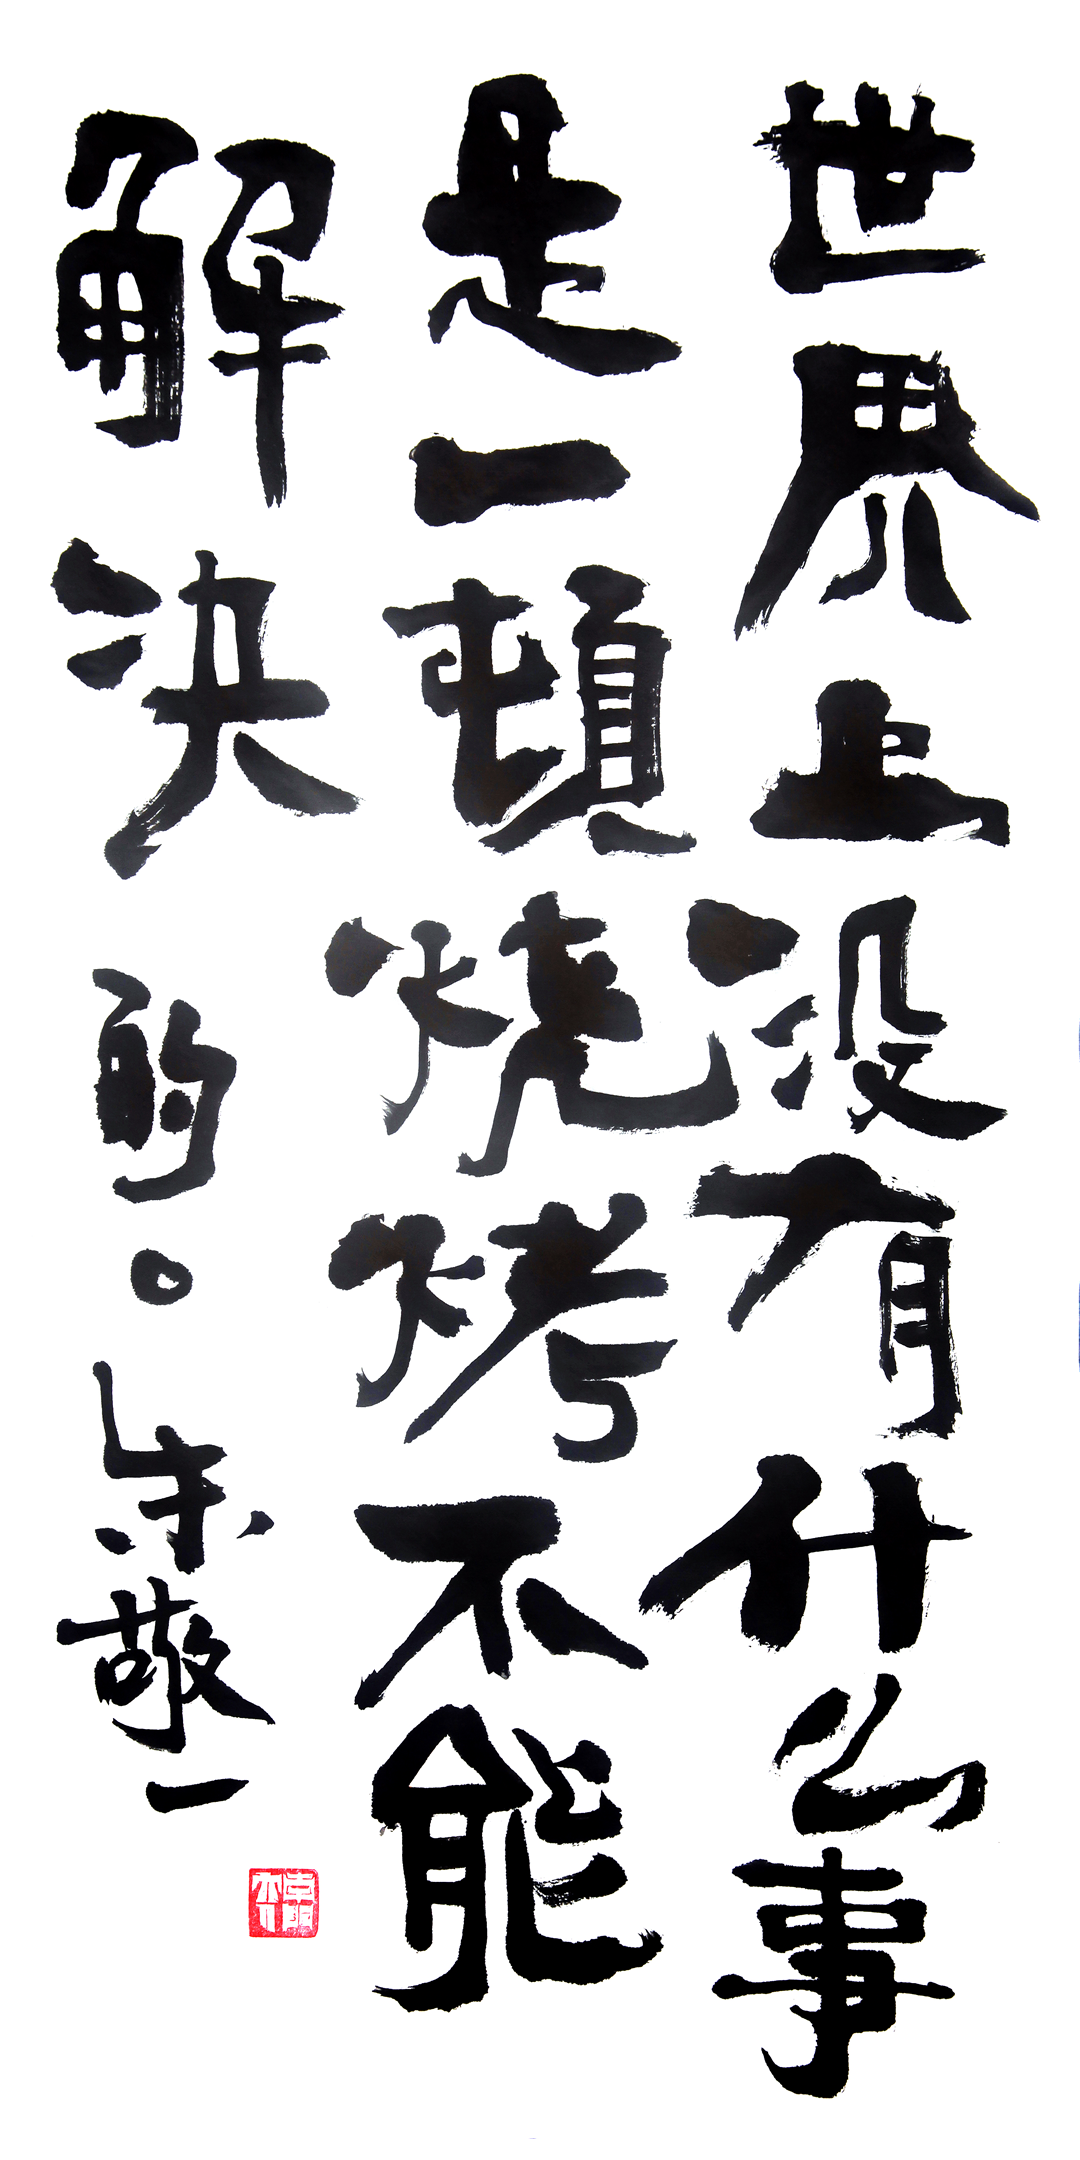 世界上没有什么事
是一頓燒烤不能
解決的。朱敬一